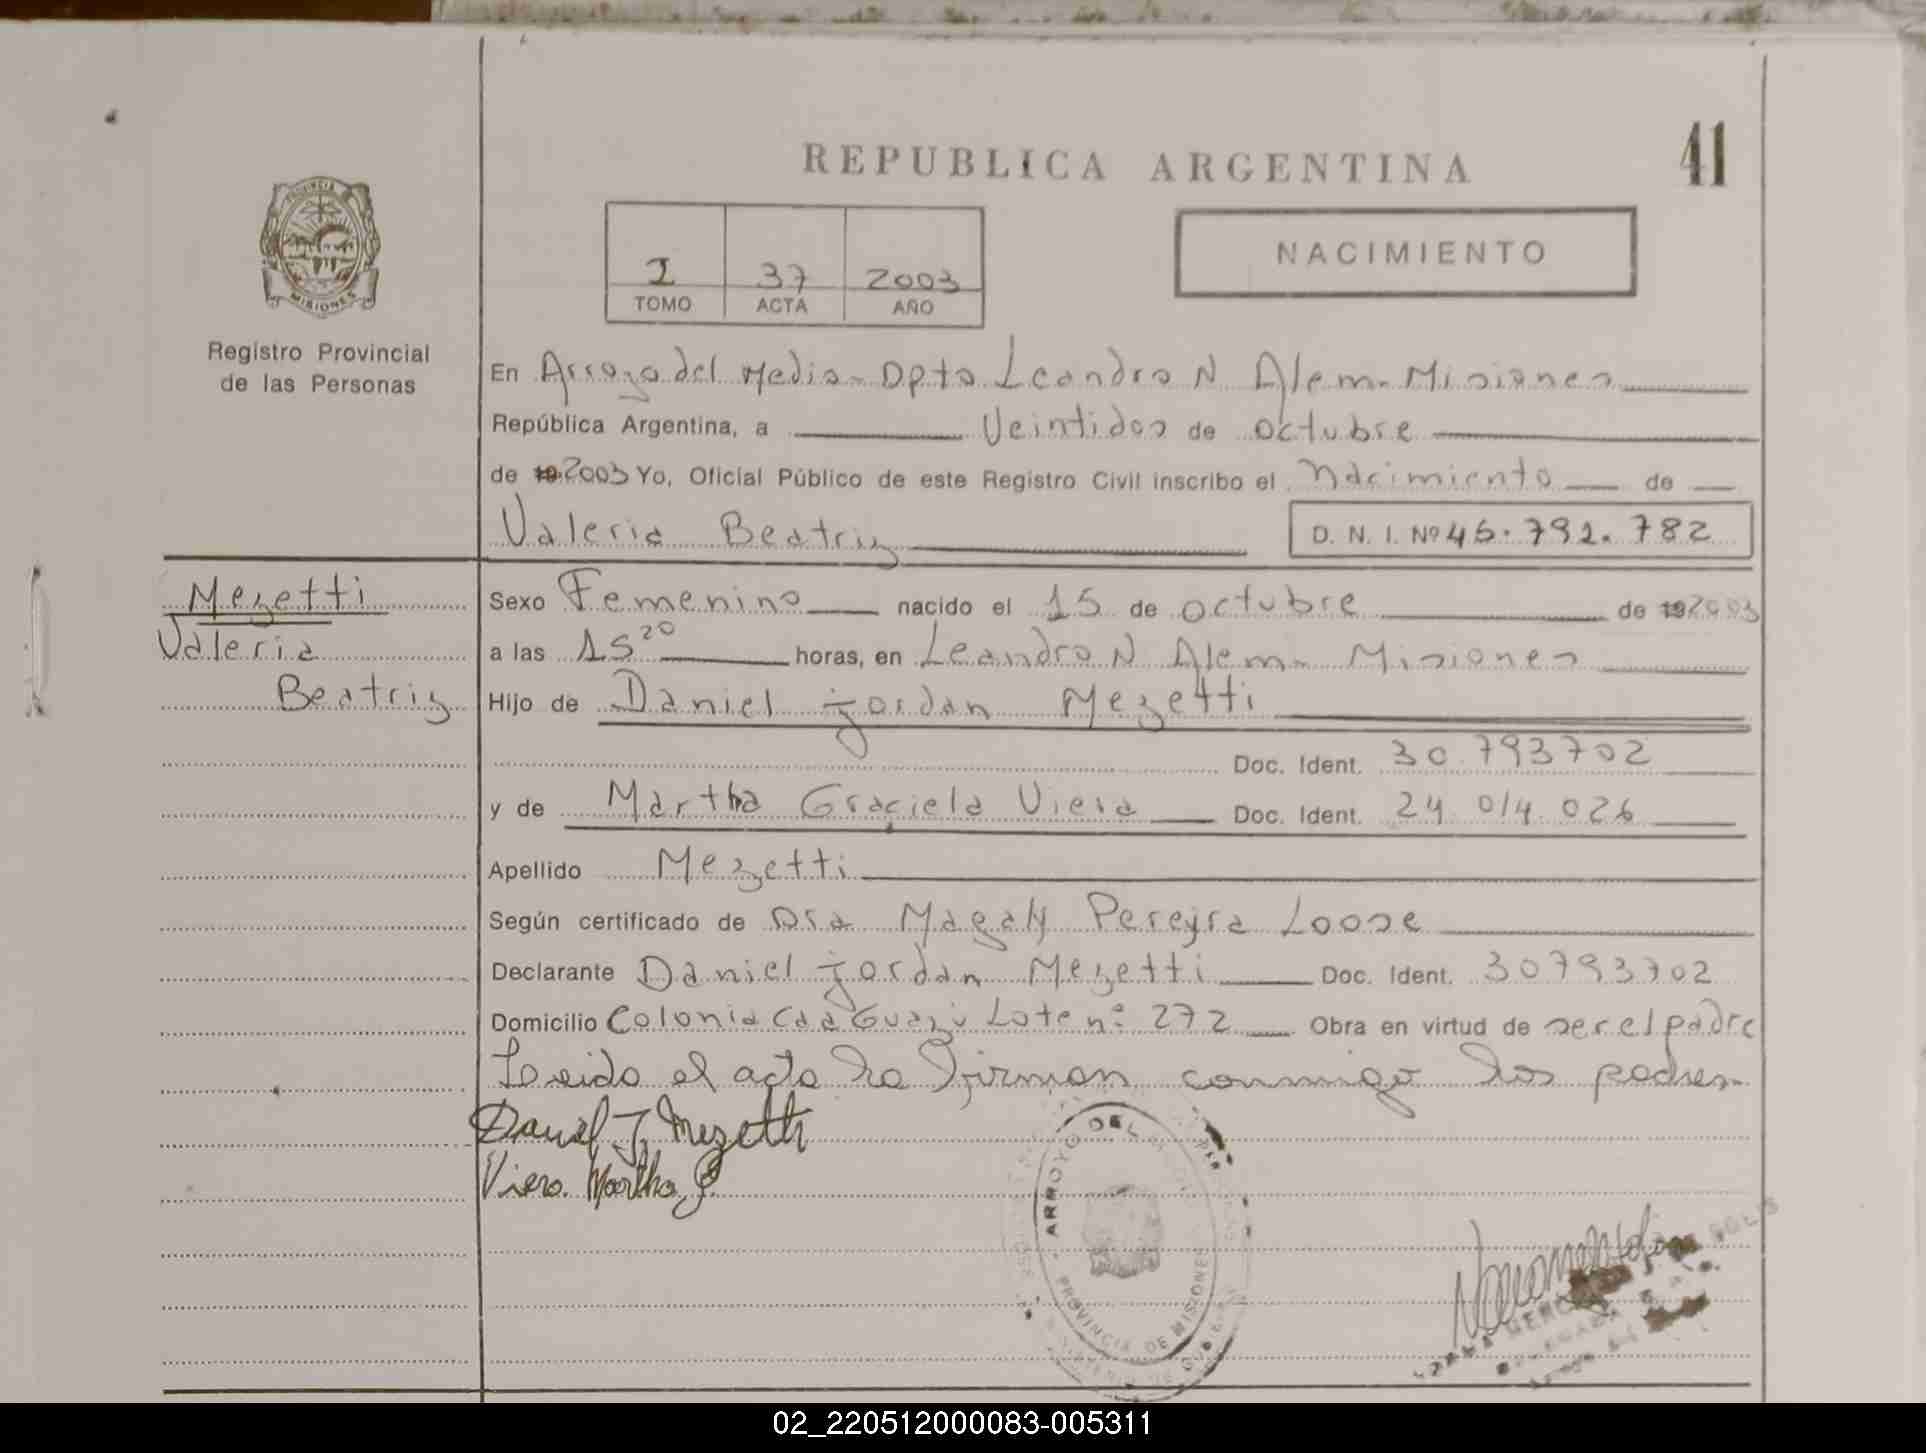 REPUBLICA ARGENTINA
41
PROVINCIA
MISIONES
Registro Provincial
de las Personas
1 37 2003
TOMO ACTA AÑO
NACIMIENTO
En Arroyo del Medio - Dpto Leandro N Alem - Misiones
República Argentina, a Veintidos de octubre
de 19 2003 Yo, Oficial Público de este Registro Civil inscribo el Nacimiento de
Valeria Beatriz D. N. I. Nº 45.792.782
Mezetti
Valeria
Beatriz
Sexo Femenino nacido el 15 de octubre de 19 2003
a las 15 20 horas, en Leandro N Alem - Misiones
Hijo de Daniel jordan Mezetti
Doc. Ident. 30.793702
y de Martha Graciela Viera Doc. Ident. 24 014.026
Apellido Mezetti
Según certificado de Dra Magaly Pereyra Loose
Declarante Daniel jordan Mezetti Doc. Ident. 30793702
Domicilio Colonia Caa Guazú Lote nº 272 Obra en virtud de ser el padre
Leido el acta la firman conmigo los padres-
Daniel J. Mezetti
Viera Martha G.
ARROYO DEL
PROVINCIA DE MISIONES
02_220512000083-005311